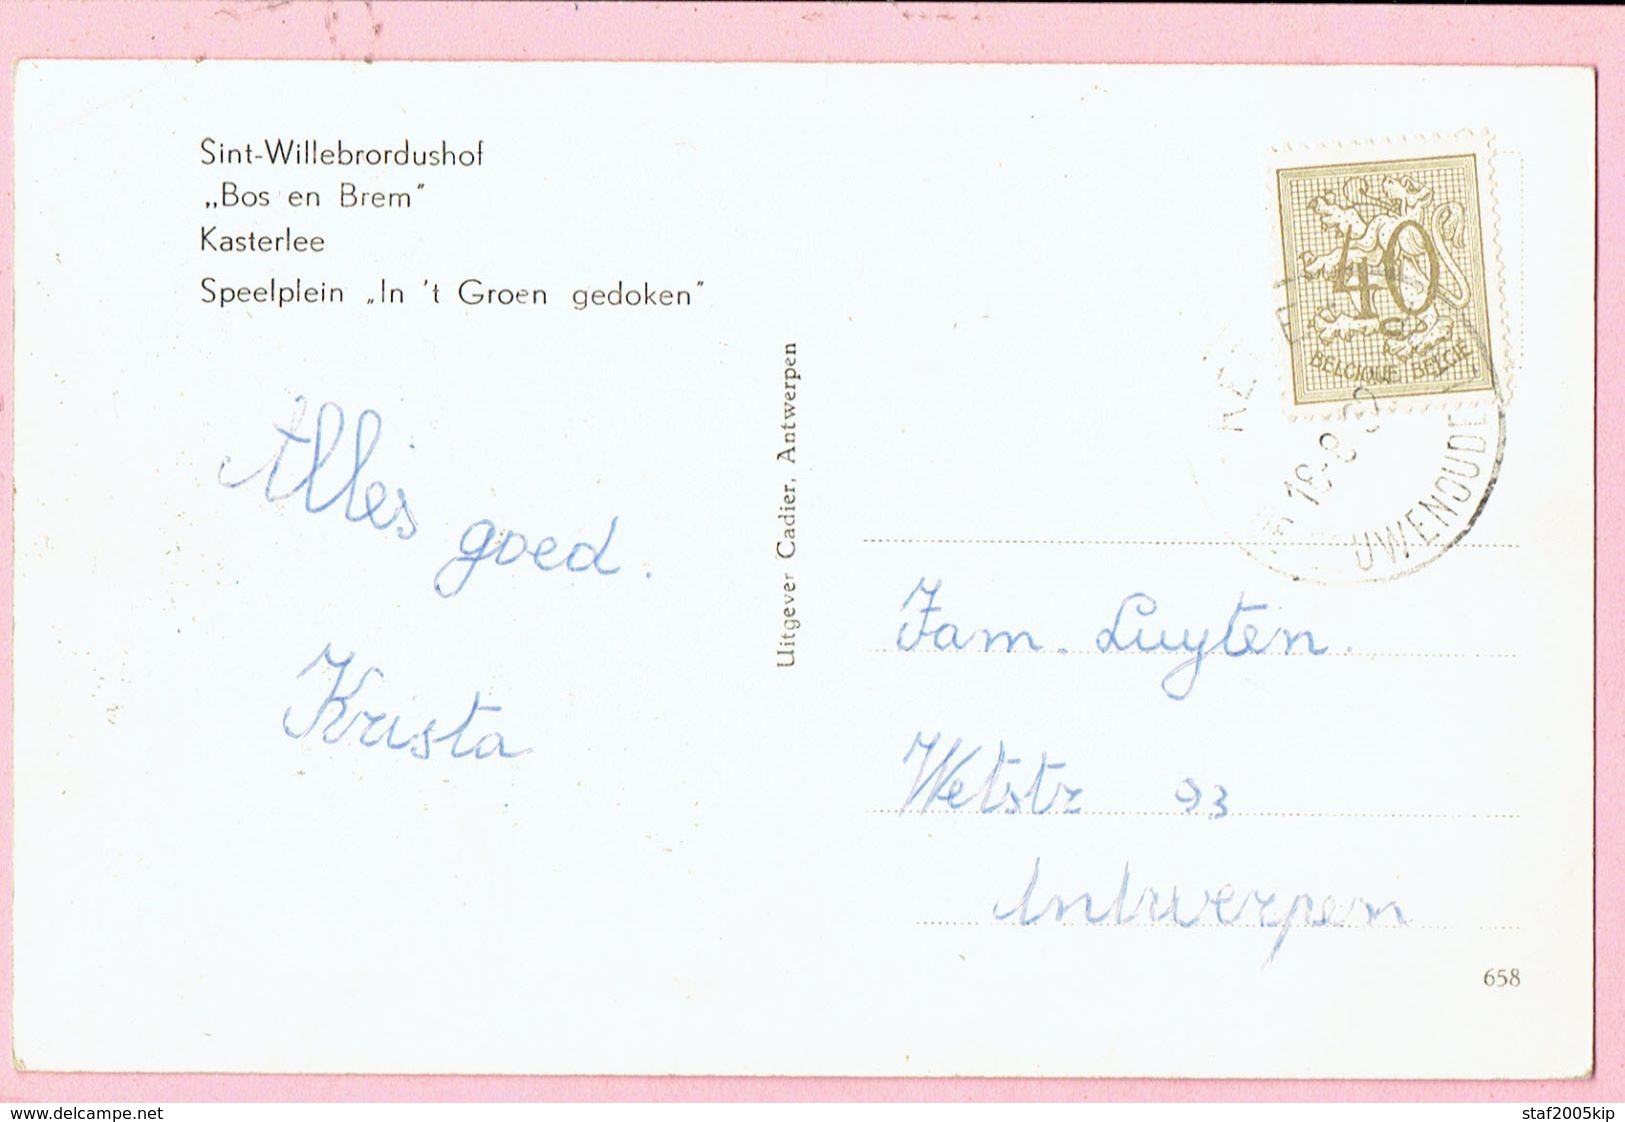 Sint-Willebrordushof
„Bos en Brem"
Kasterlee
Speelplein „In 't Groen gedoken"
Alles
goed.
Krista
Uitgever Cadier, Antwerpen
40
BELGIQUE BELGIË
UWENOUDE
Fam. Luyten.
Wetstr 93
Antwerpen
658
www.delcampe.net
staf2005kip